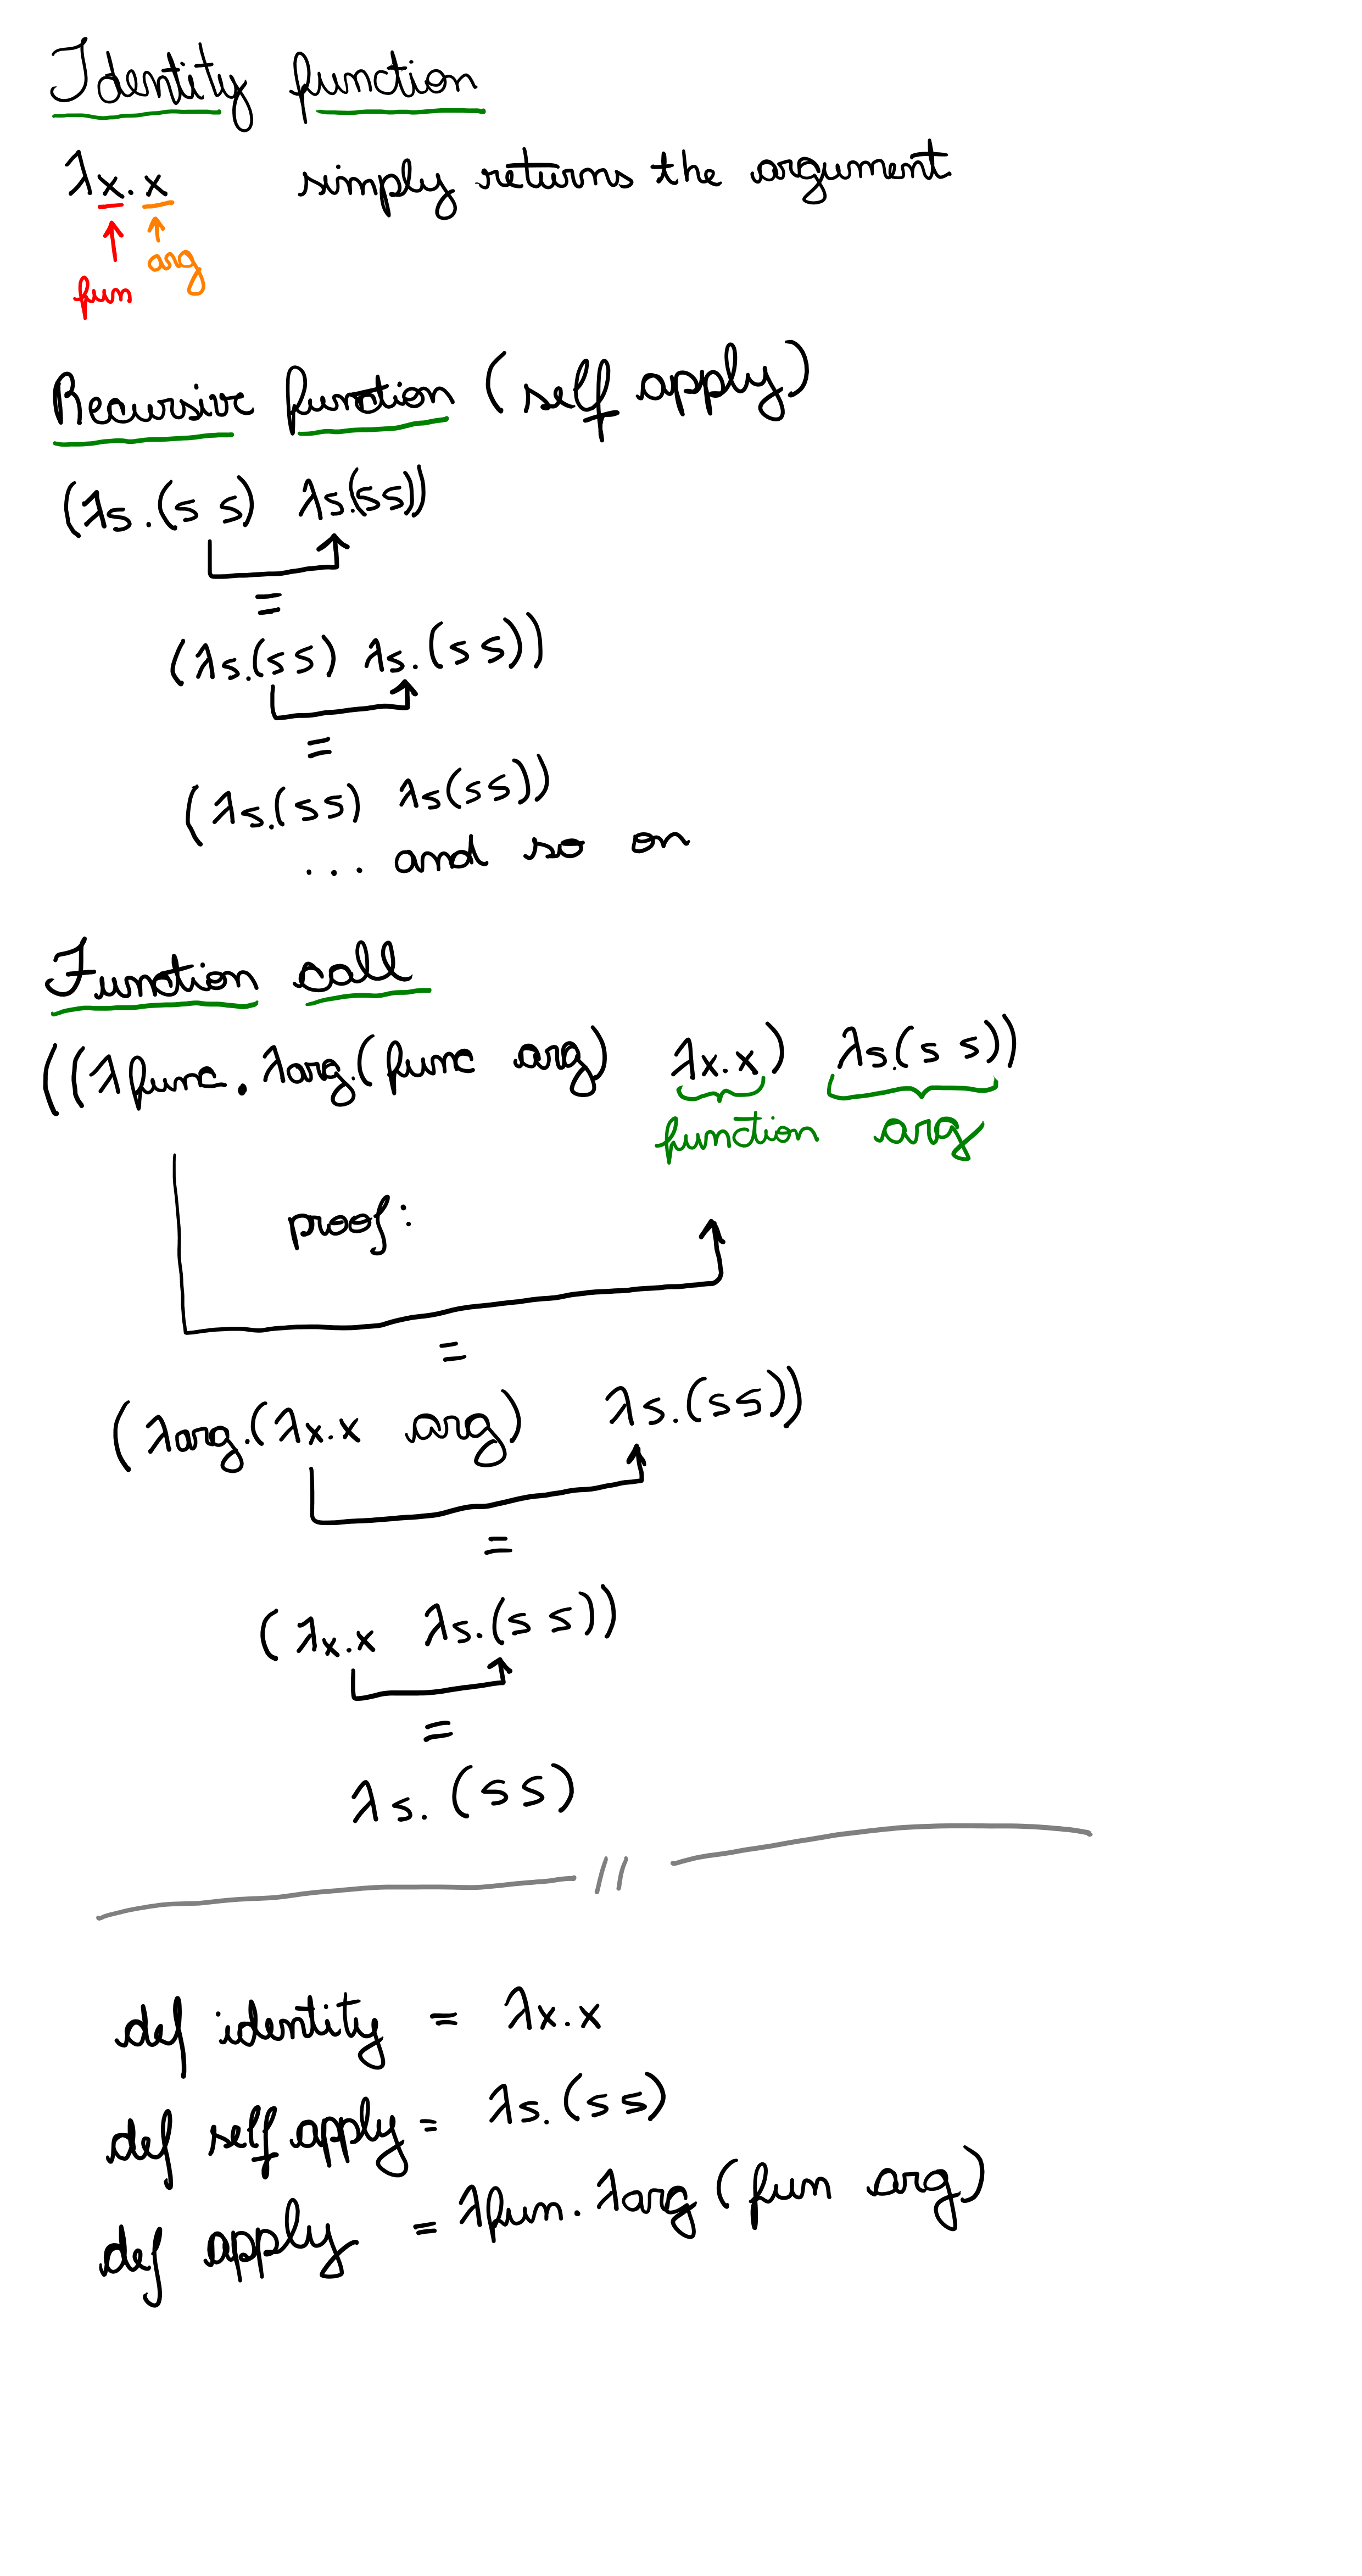 Identity function
λx.x simply returns the argument
fun arg
Recursive function (self apply)
(λs.(s s) λs.(ss))
=
(λs.(ss) λs.(ss))
=
(λs.(ss) λs(ss))
... and so on
Function call
((λfunc.λarg.(func arg) λx.x) λs.(s s))
function arg
proof:
=
(λarg.(λx.x arg) λs.(ss))
=
(λx.x λs.(s s))
=
λs.(ss)
//
def identity = λx.x
def self apply = λs.(ss)
def apply = λfun.λarg(fun arg)